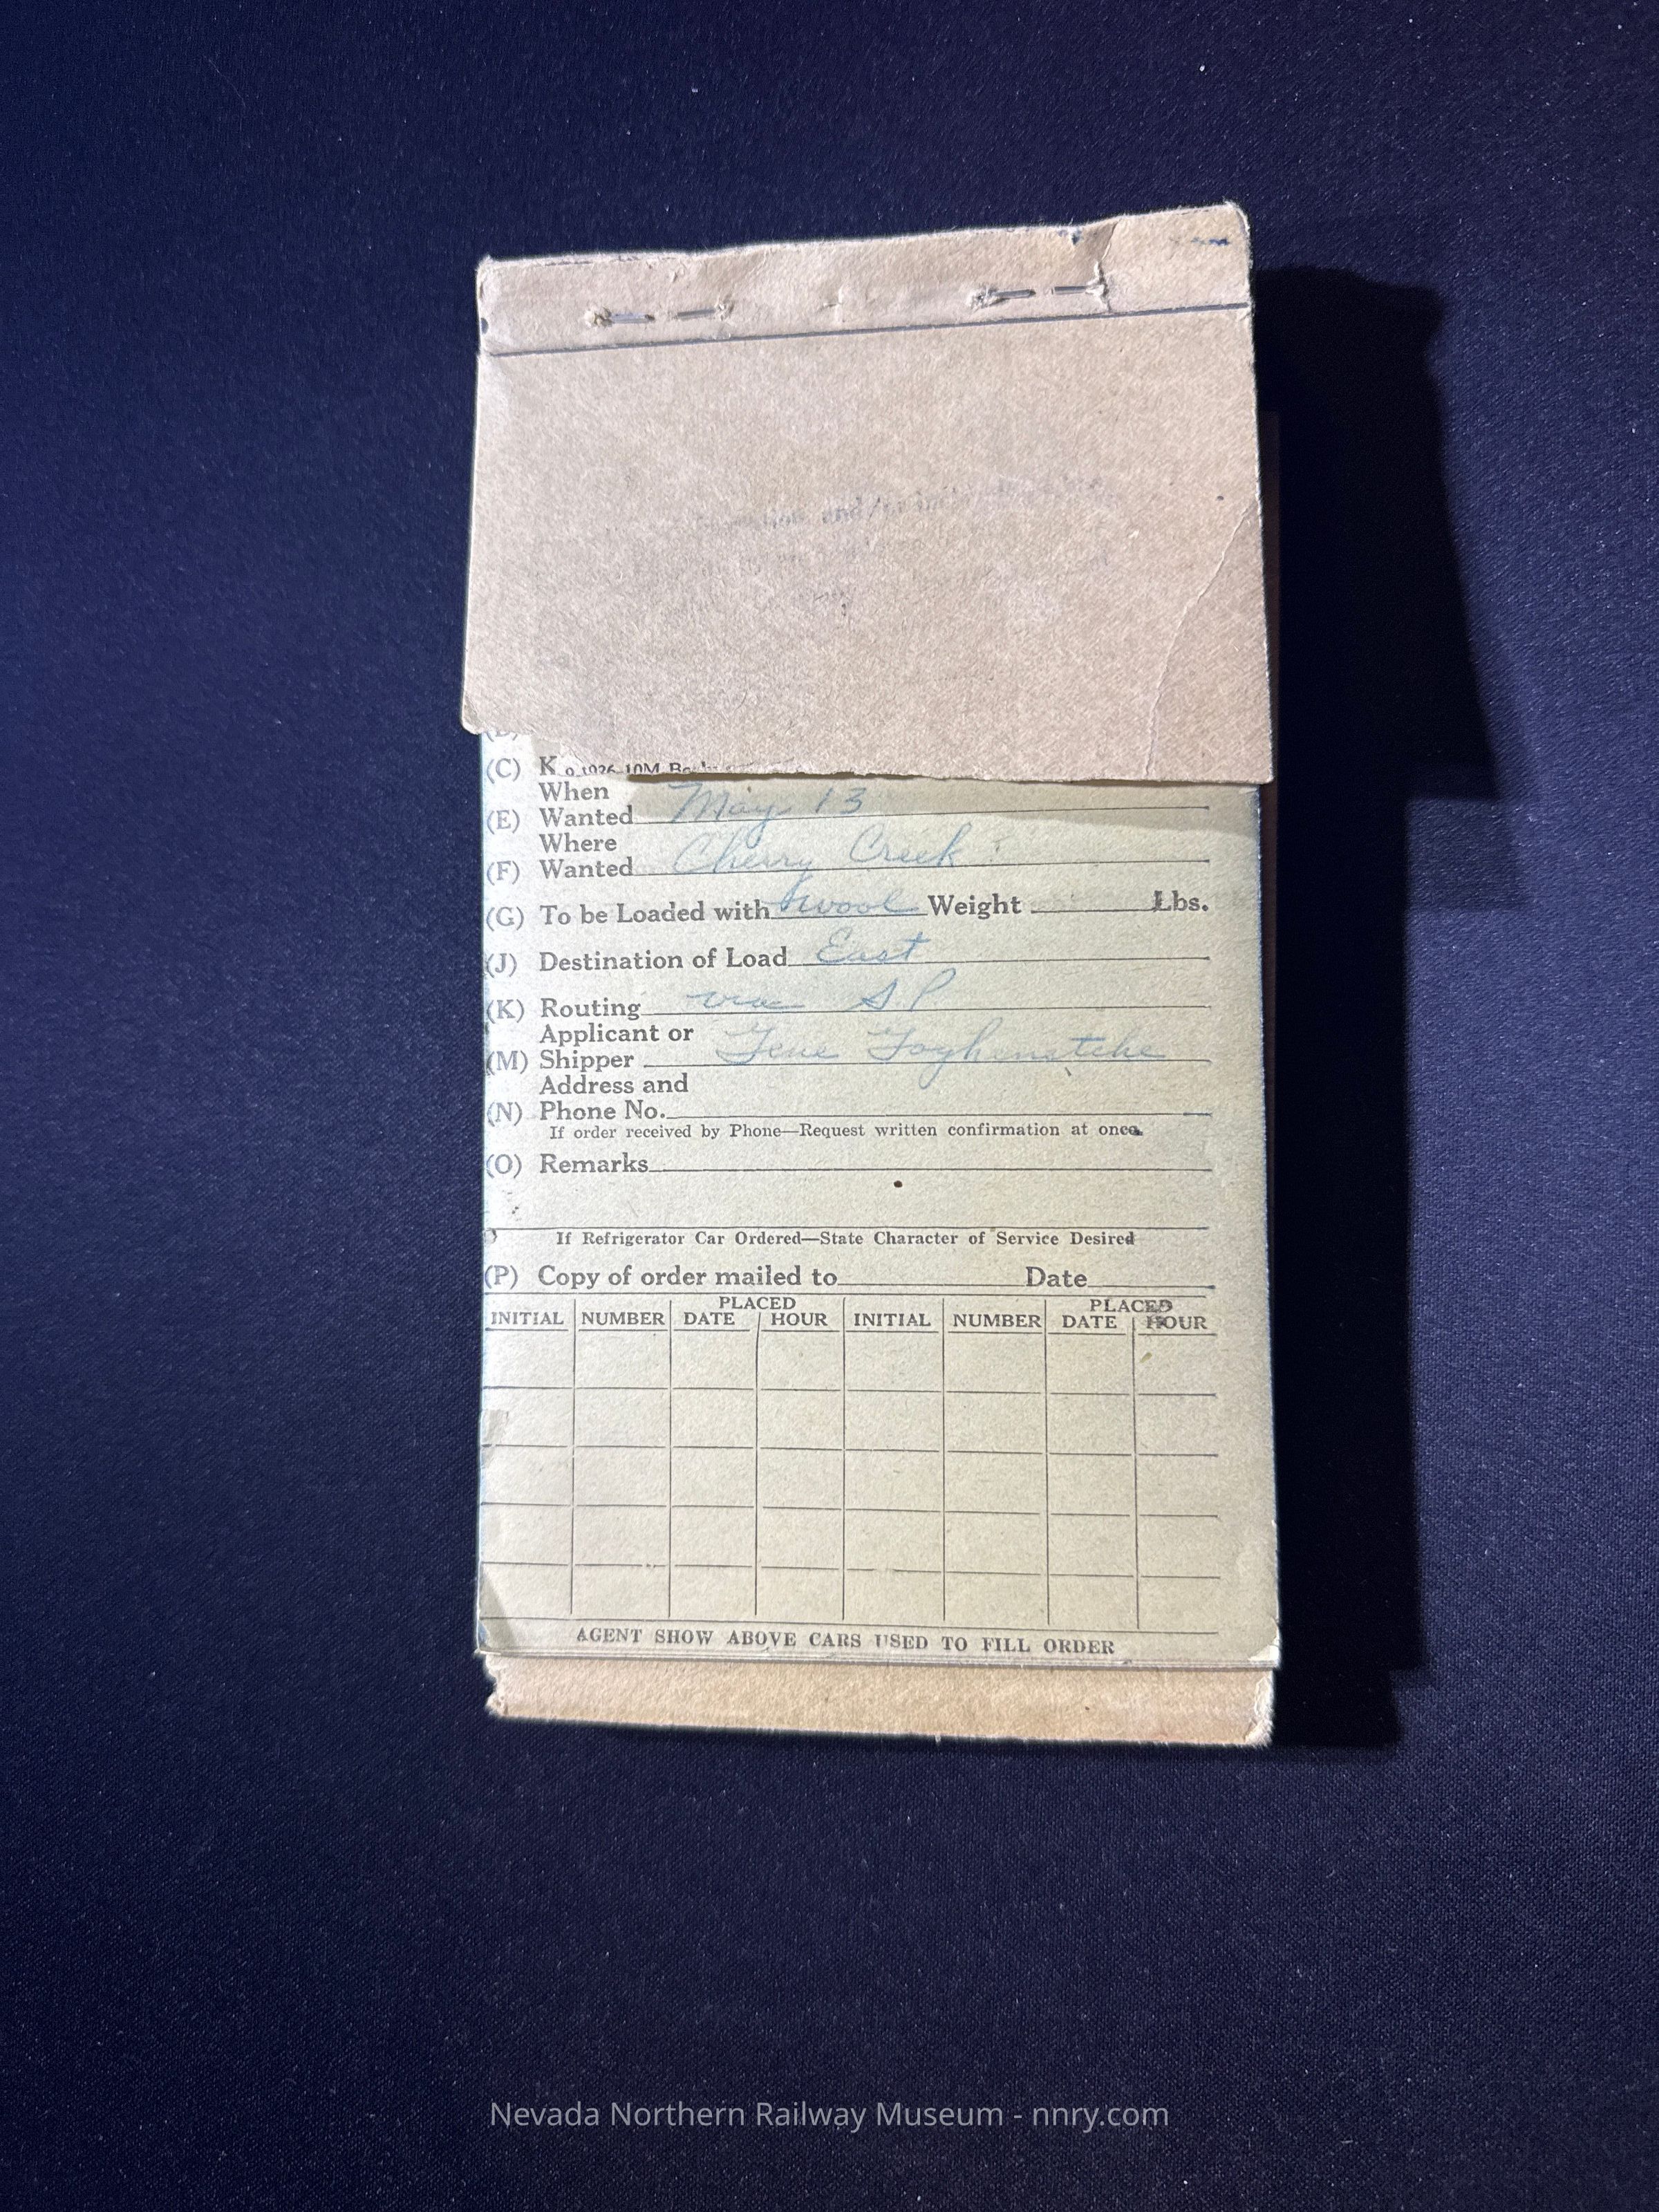 (C) K
1926 10M
When
(E) Wanted May 13
Where
(F) Wanted Cherry Creek
(G) To be Loaded with wool Weight Lbs.
(J) Destination of Load East
(K) Routing via S.P
Applicant or
(M) Shipper Gene
Address and
(N) Phone No.
If order received by Phone—Request written confirmation at once.
(O) Remarks
If Refrigerator Car Ordered—State Character of Service Desired
(P) Copy of order mailed to Date
PLACED PLACED
INITIAL NUMBER DATE HOUR INITIAL NUMBER DATE HOUR
AGENT SHOW ABOVE CARS USED TO FILL ORDER
Nevada Northern Railway Museum - nnry.com